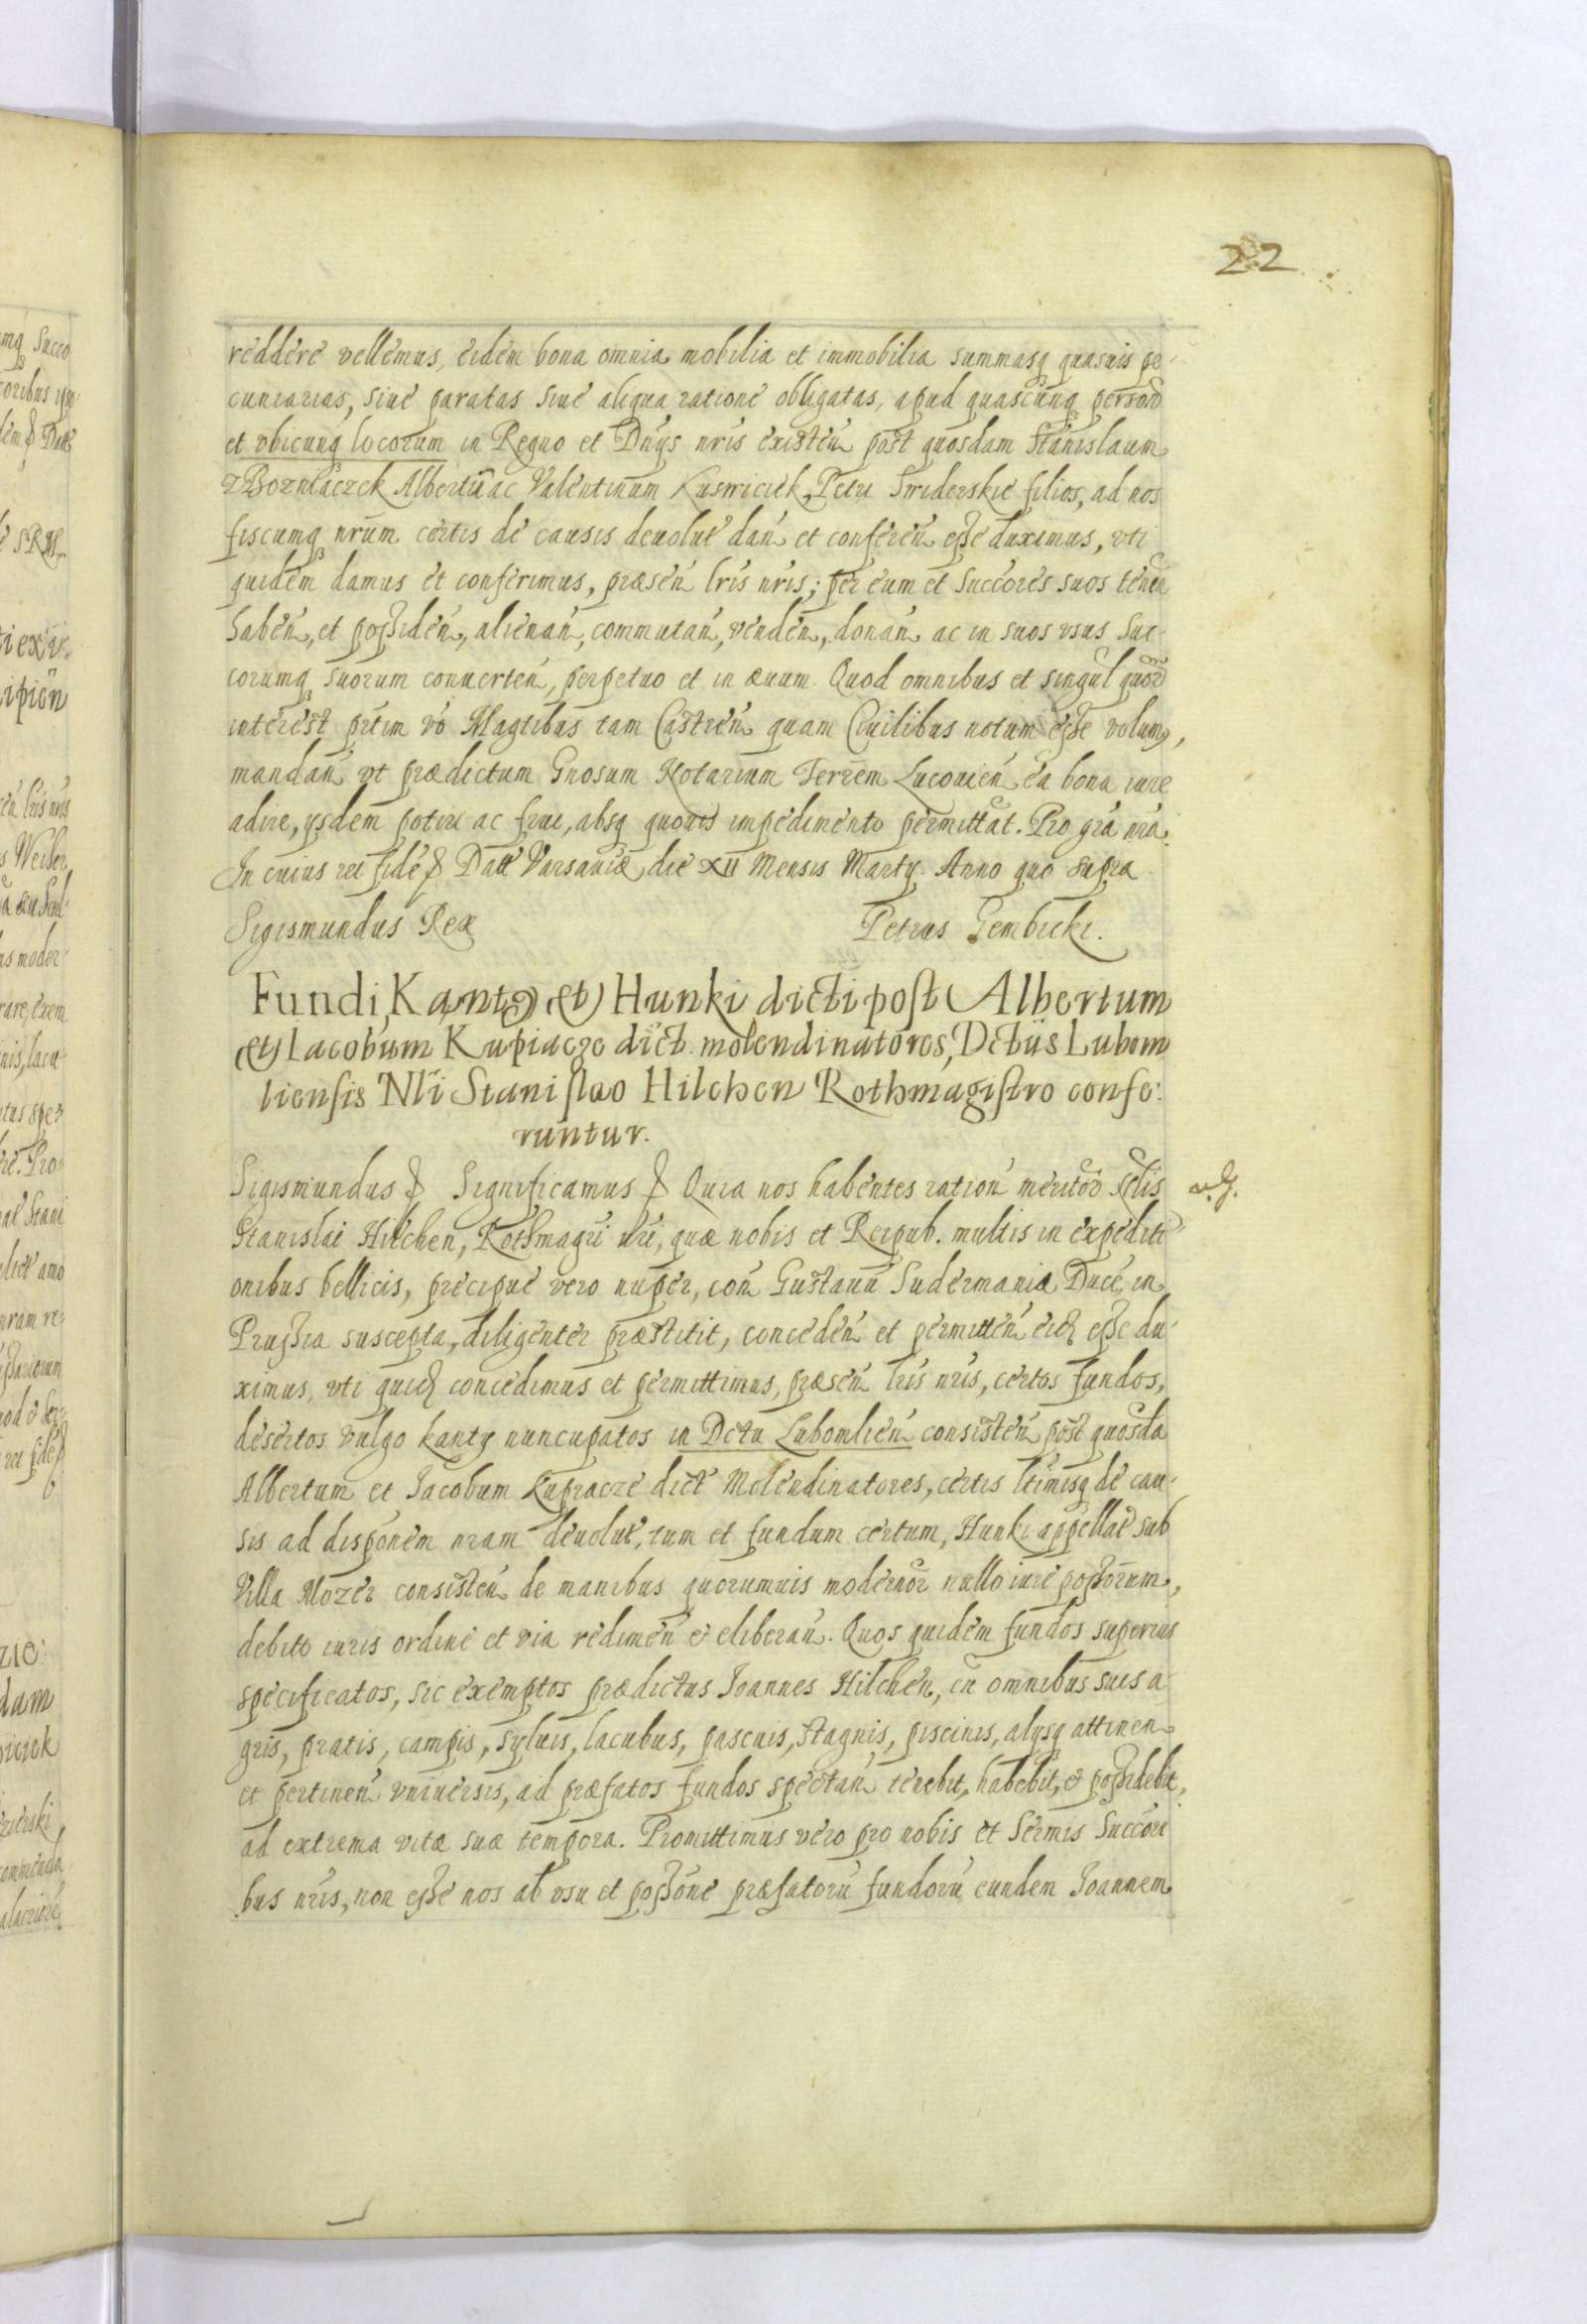 22
reddere vellemus, eidem bona omnia mobilia et immobilia summasq quasuis pe-
cuniarias, siue paratas siue aliqua ratione obligatas, apud quascunq person
et vbicunq locorum in Regno et Dnys nris existen post quosdam Stanislaum
z Bozniaczek Albertu ac Valentinum Kuswiciek, Petri Swiderskie filios, ad nos
fiscumq nrum certis de causis deuolut dan et conferen esse duximus, vti
quidem damus et conferimus, præsen lris nris; per eum et Succores suos tenen
haben, et possiden, alienan, commutan, venden, donan ac in suos vsus Suc-
corumq suorum conuerten, perpetuo et in æuum. Quod omnibus et singul quor
interest prtim vo Magtibus tam Castren quam Ciuilibus notum esse volum,
mandan vt prædictum Gnosum Notarium Terrem Lucouien ea bona iure
adire, ysdem potiri ac frui, absq quouis impedimento permittat. Pro gra nra.
In cuius rei fide Datt Varsauiæ die XII Mensis Marty Anno quo supra
Sigismundus Rex Petrus Gembicki.
Fundi Kanty et Hunki dicti post Albertum
et Iacobum Kupiacze dict. molendinatores, Dctûs Lubom
liensis Nli Stanislao Hilchen Rothmagistro confe:
runtur.
Sigismundus Significamus Quia nos habentes ration meritor
Stanislai Hilchen, Rothmagri nri, quæ nobis et Reipub. multis in expediti-
onibus bellicis, precipue vero nuper, con Gustauu Sudermaniæ Duce, in
Prussia suscepta, diligenter præstitit, conceden et permitten eid esse du-
ximus, vti quid concedimus et permittimus, præsen lris nris, certos fundos,
desertos vulgo kanty nuncupatos in Dctu Lubomlien consisten post quosda
Albertum et Jacobum Kupiacze dict Molendinatores, certis ltimisq de cau-
sis ad disponem nram deuolut, tum et fundum certum, Hunki appellat sub
Villa Mozer consisten de manibus quorumuis modernor nullo iure possorum,
debito iuris ordine et via redimen et eliberan. Quos quidem fundos superius
specificatos, sic exemptos prædictus Joannes Hilchen, in omnibus suis a-
gris, pratis, campis, syluis, lacubus, pascuis, stagnis, piscinis, alysq attinen
et pertinen vniuersis, ad præfatos fundos spectan tenebit, habebit, et possidebit,
ad extrema vitæ suæ tempora. Promittimus vero pro nobis et Sermis Succori
bus nris, non esse nos ab vsu et possone præfatoru fundoru eundem Joannem